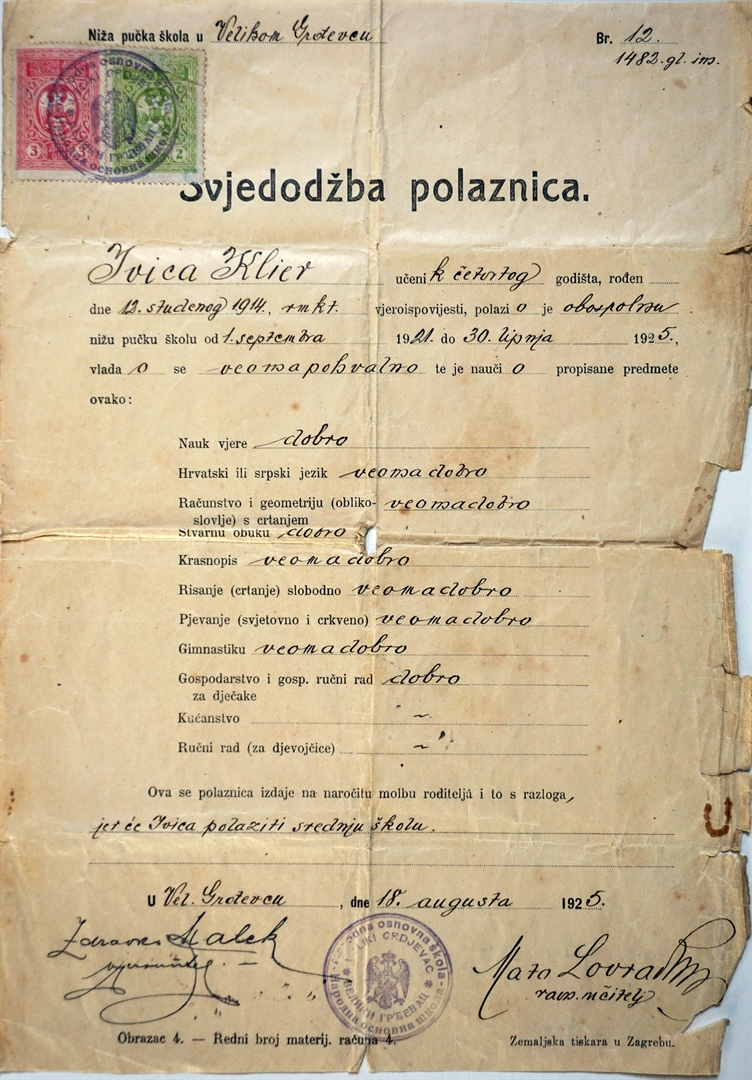 Niža pučka škola u Velikom Grđevcu Br. 12.
1482. gl. ins.
3 3 2
Svjedodžba polaznica.
Ivica Klier učenik četvrtog godišta, rođen
dne 12. studenog 1914., rmkt. vjeroispovijesti, polazio je obospolnu
nižu pučku školu od 1. septembra 1921. do 30. lipnja 1925.,
vladao se veoma pohvalno te je naučio propisane predmete
ovako:
Nauk vjere dobro
Hrvatski ili srpski jezik veoma dobro
Računstvo i geometriju (obliko- veoma dobro
slovlje) s crtanjem
Stvarnu obuku dobro
Krasnopis veoma dobro
Risanje (crtanje) slobodno veoma dobro
Pjevanje (svjetovno i crkveno) veoma dobro
Gimnastiku veoma dobro
Gospodarstvo i gosp. ručni rad dobro
za dječake
Kućanstvo ~
Ručni rad (za djevojčice) ~
Ova se polaznica izdaje na naročitu molbu roditeljâ i to s razloga,
jer će Ivica polaziti srednju školu.
U Vel. Grđevcu, dne 18. augusta 1925.
Malek
Mato Lovrak
rav. učitelj
Narodna osnovna škola
VELIKI GRDJEVAC
ВЕЛИКИ ГРЂЕВАЦ
Народна основна школа
Obrazac 4. — Redni broj materij. računa 4. Zemaljska tiskara u Zagrebu.